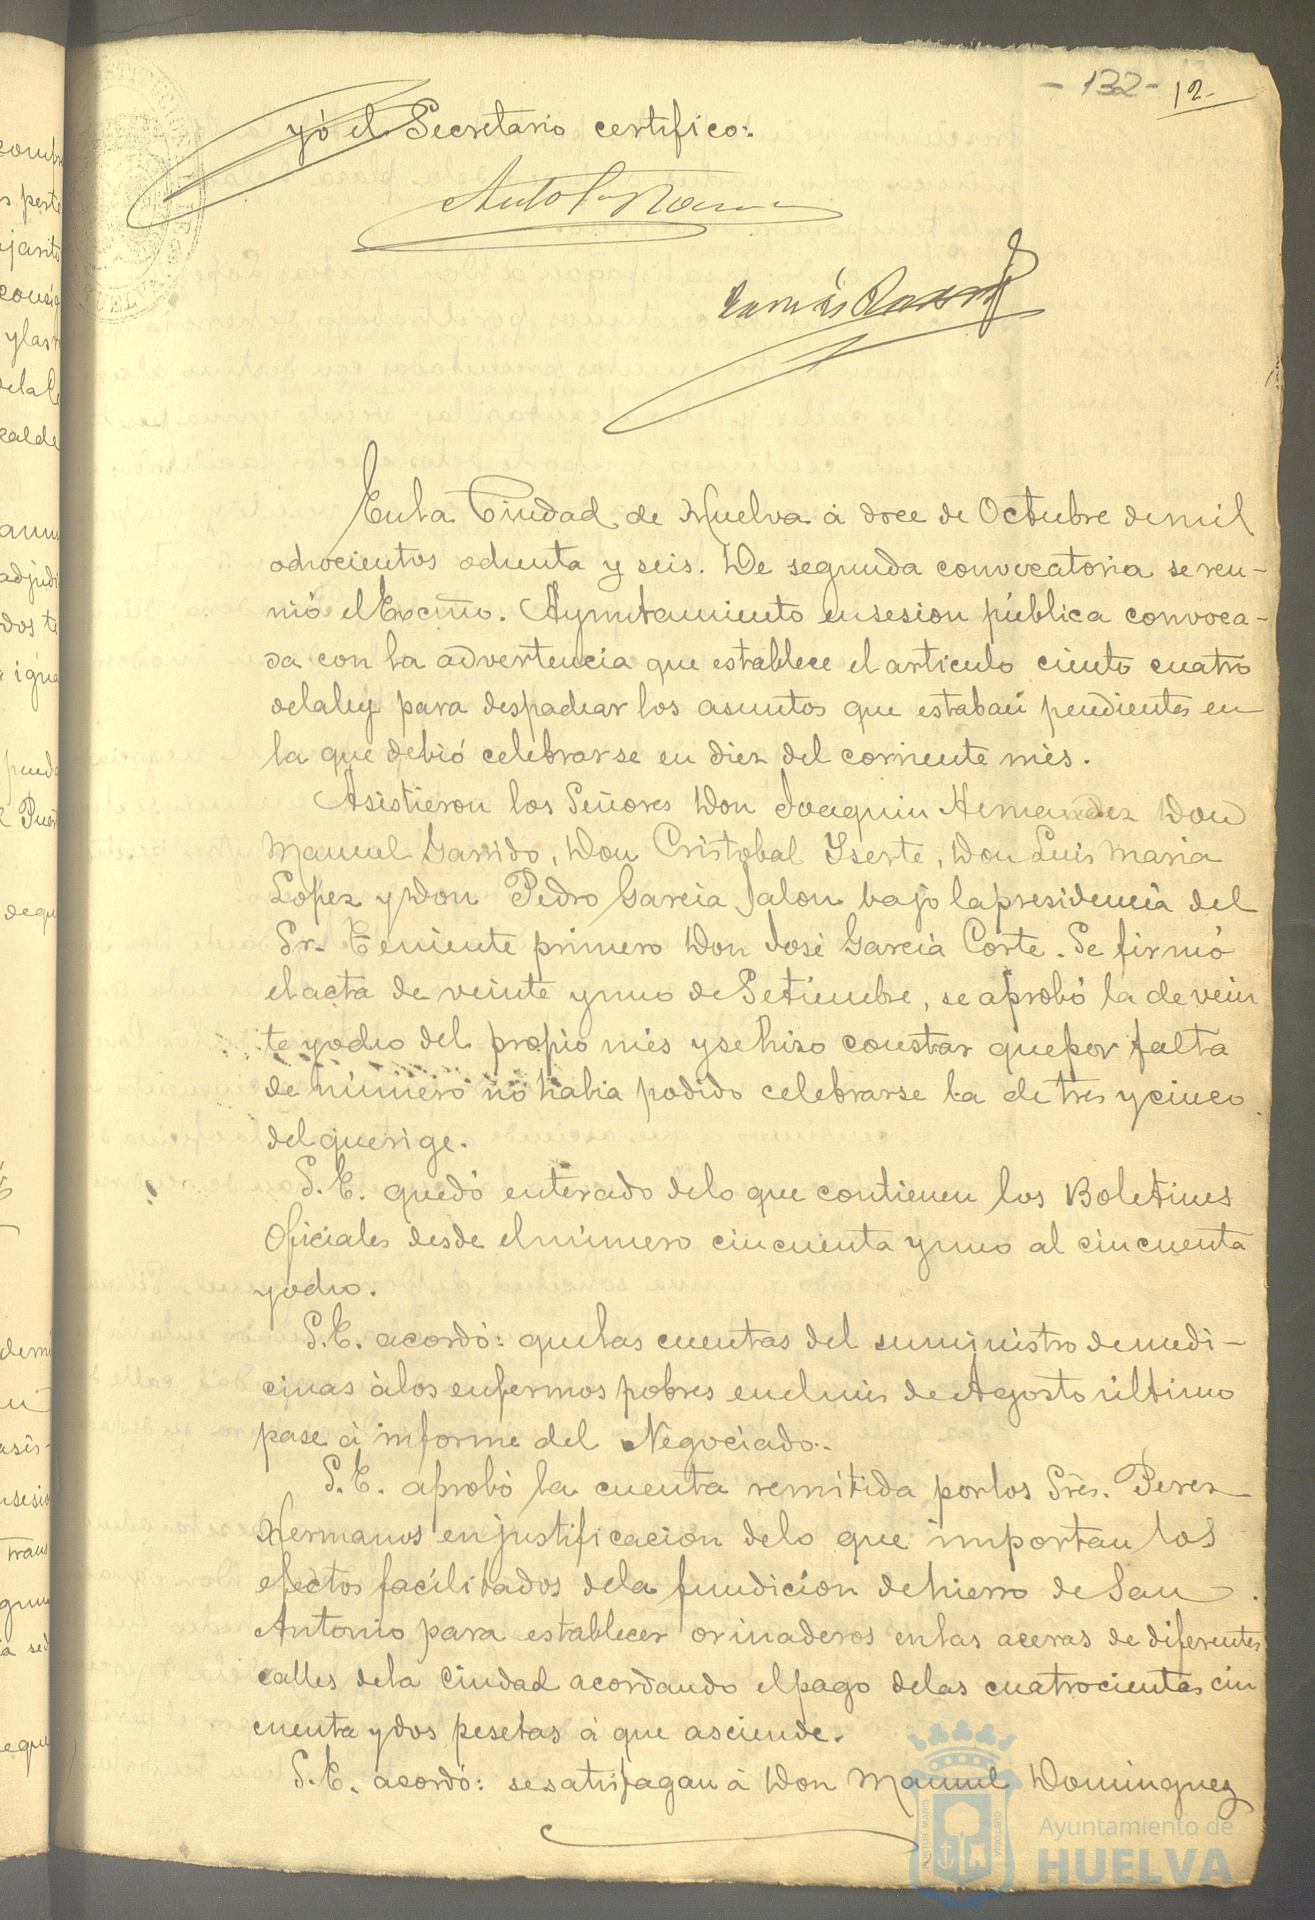 - 132 - 12
yó el Secretario certifico:
En la Ciudad de Huelva á doce de Octubre de mil
ochocientos ochenta y seis. De segunda convocatoria se reu-
nió el Excmo. Ayuntamiento en sesion pública convoca-
da con la advertencia que establece el articulo ciento cuatro
de la ley para despachar los asuntos que estaban pendientes en
la que debió celebrarse en diez del corriente més.
Asistieron los Señores Don Joaquin Hernandez Don
Manuel Garrido, Don Cristobal Yserte, Don Luis Maria
Lopez y Don Pedro Garcia Jalon bajo la presidencia del
Sr. Teniente primero Don José Garcia Corte. Se firmó
el acta de veinte y uno de Setiembre, se aprobó la de vein
te y ocho del propio més y se hizo constar que por falta
de número no habia podido celebrarse la de tres y cinco
del que rige.
S. E. quedó enterado de lo que contienen los Boletines
Oficiales desde el número cincuenta y uno al cincuenta
y ocho.
S. E. acordó: que las cuentas del suministro de medi-
cinas á los enfermos pobres en el més de Agosto último
pase á informe del Negociado.
S. E. aprobó la cuenta remitida por los Sres. Perez
Hermanos en justificacion de lo que importan los
efectos facilitados de la fundicion de hierro de San
Antonio para establecer orinaderos en las aceras de diferentes
calles de la Ciudad acordando el pago de las cuatrocientas cin
cuenta y dos pesetas á que asciende.
S. E. acordó: se satisfagan á Don Manuel Dominguez
Ayuntamiento de
HUELVA